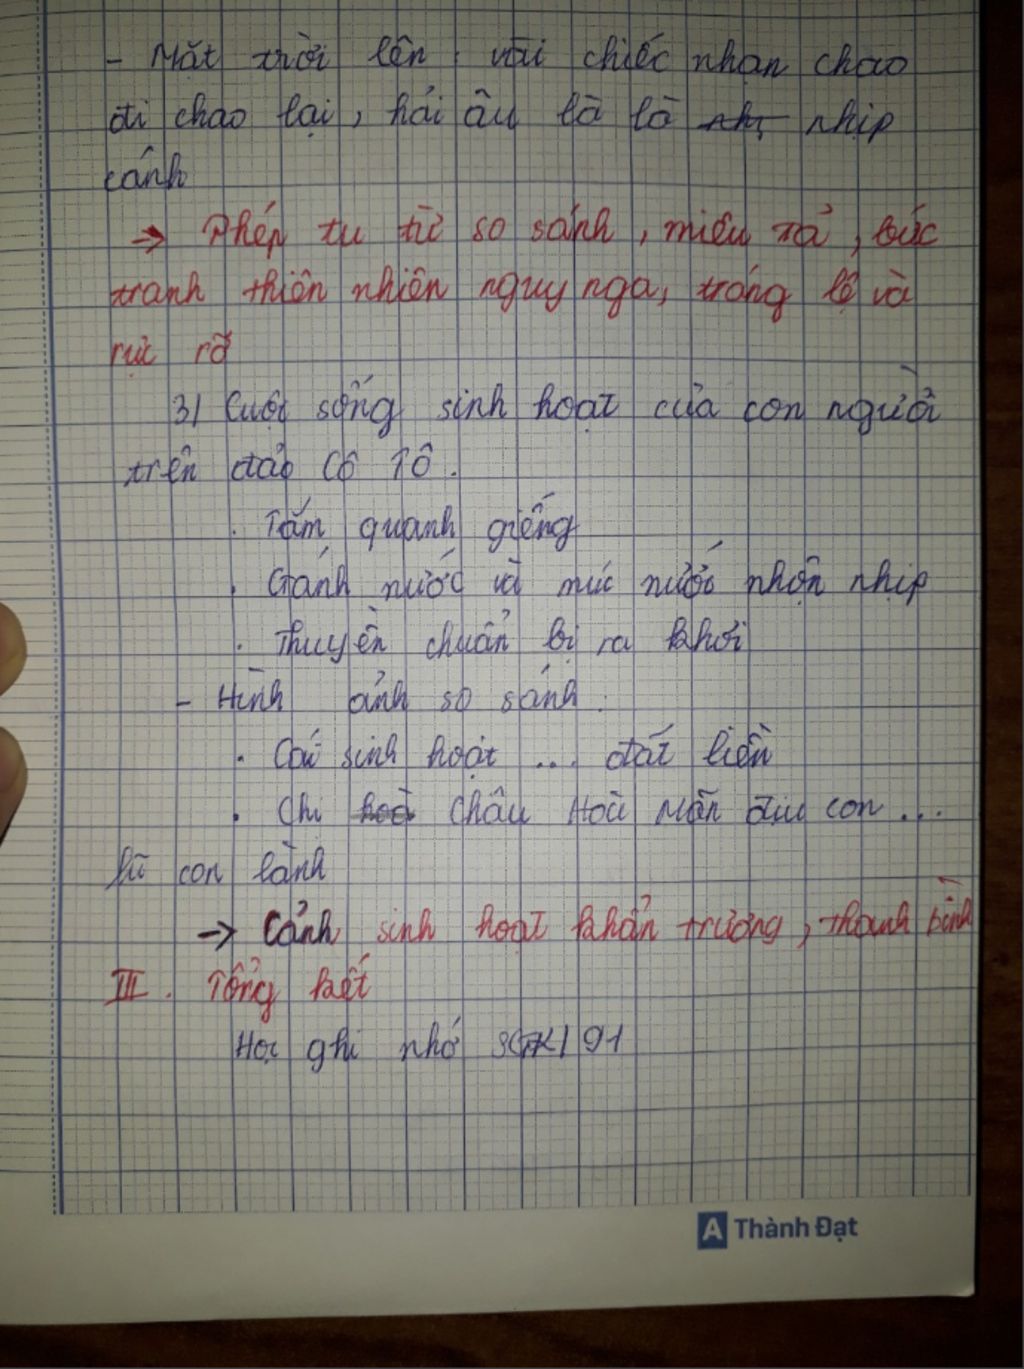 - Mặt trời lên: vài chiếc nhạn chao
đi chao lại, hải âu là là nhịp
cánh
→ Phép tu từ so sánh, miêu tả, bức
tranh thiên nhiên nguy nga, tráng lệ và
rực rỡ
3/ Cuộc sống sinh hoạt của con người
trên đảo Cô Tô.
. Tắm quanh giếng
. Gánh nước và múc nước nhộn nhịp
. Thuyền chuẩn bị ra khơi
- Hình ảnh so sánh:
. Cái sinh hoạt ... đất liền
. Chị Châu Hoà Mãn địu con ...
lũ con lành
→ Cảnh sinh hoạt khẩn trương, thanh bình
III. Tổng kết
Học ghi nhớ SGK/91
A Thành Đạt